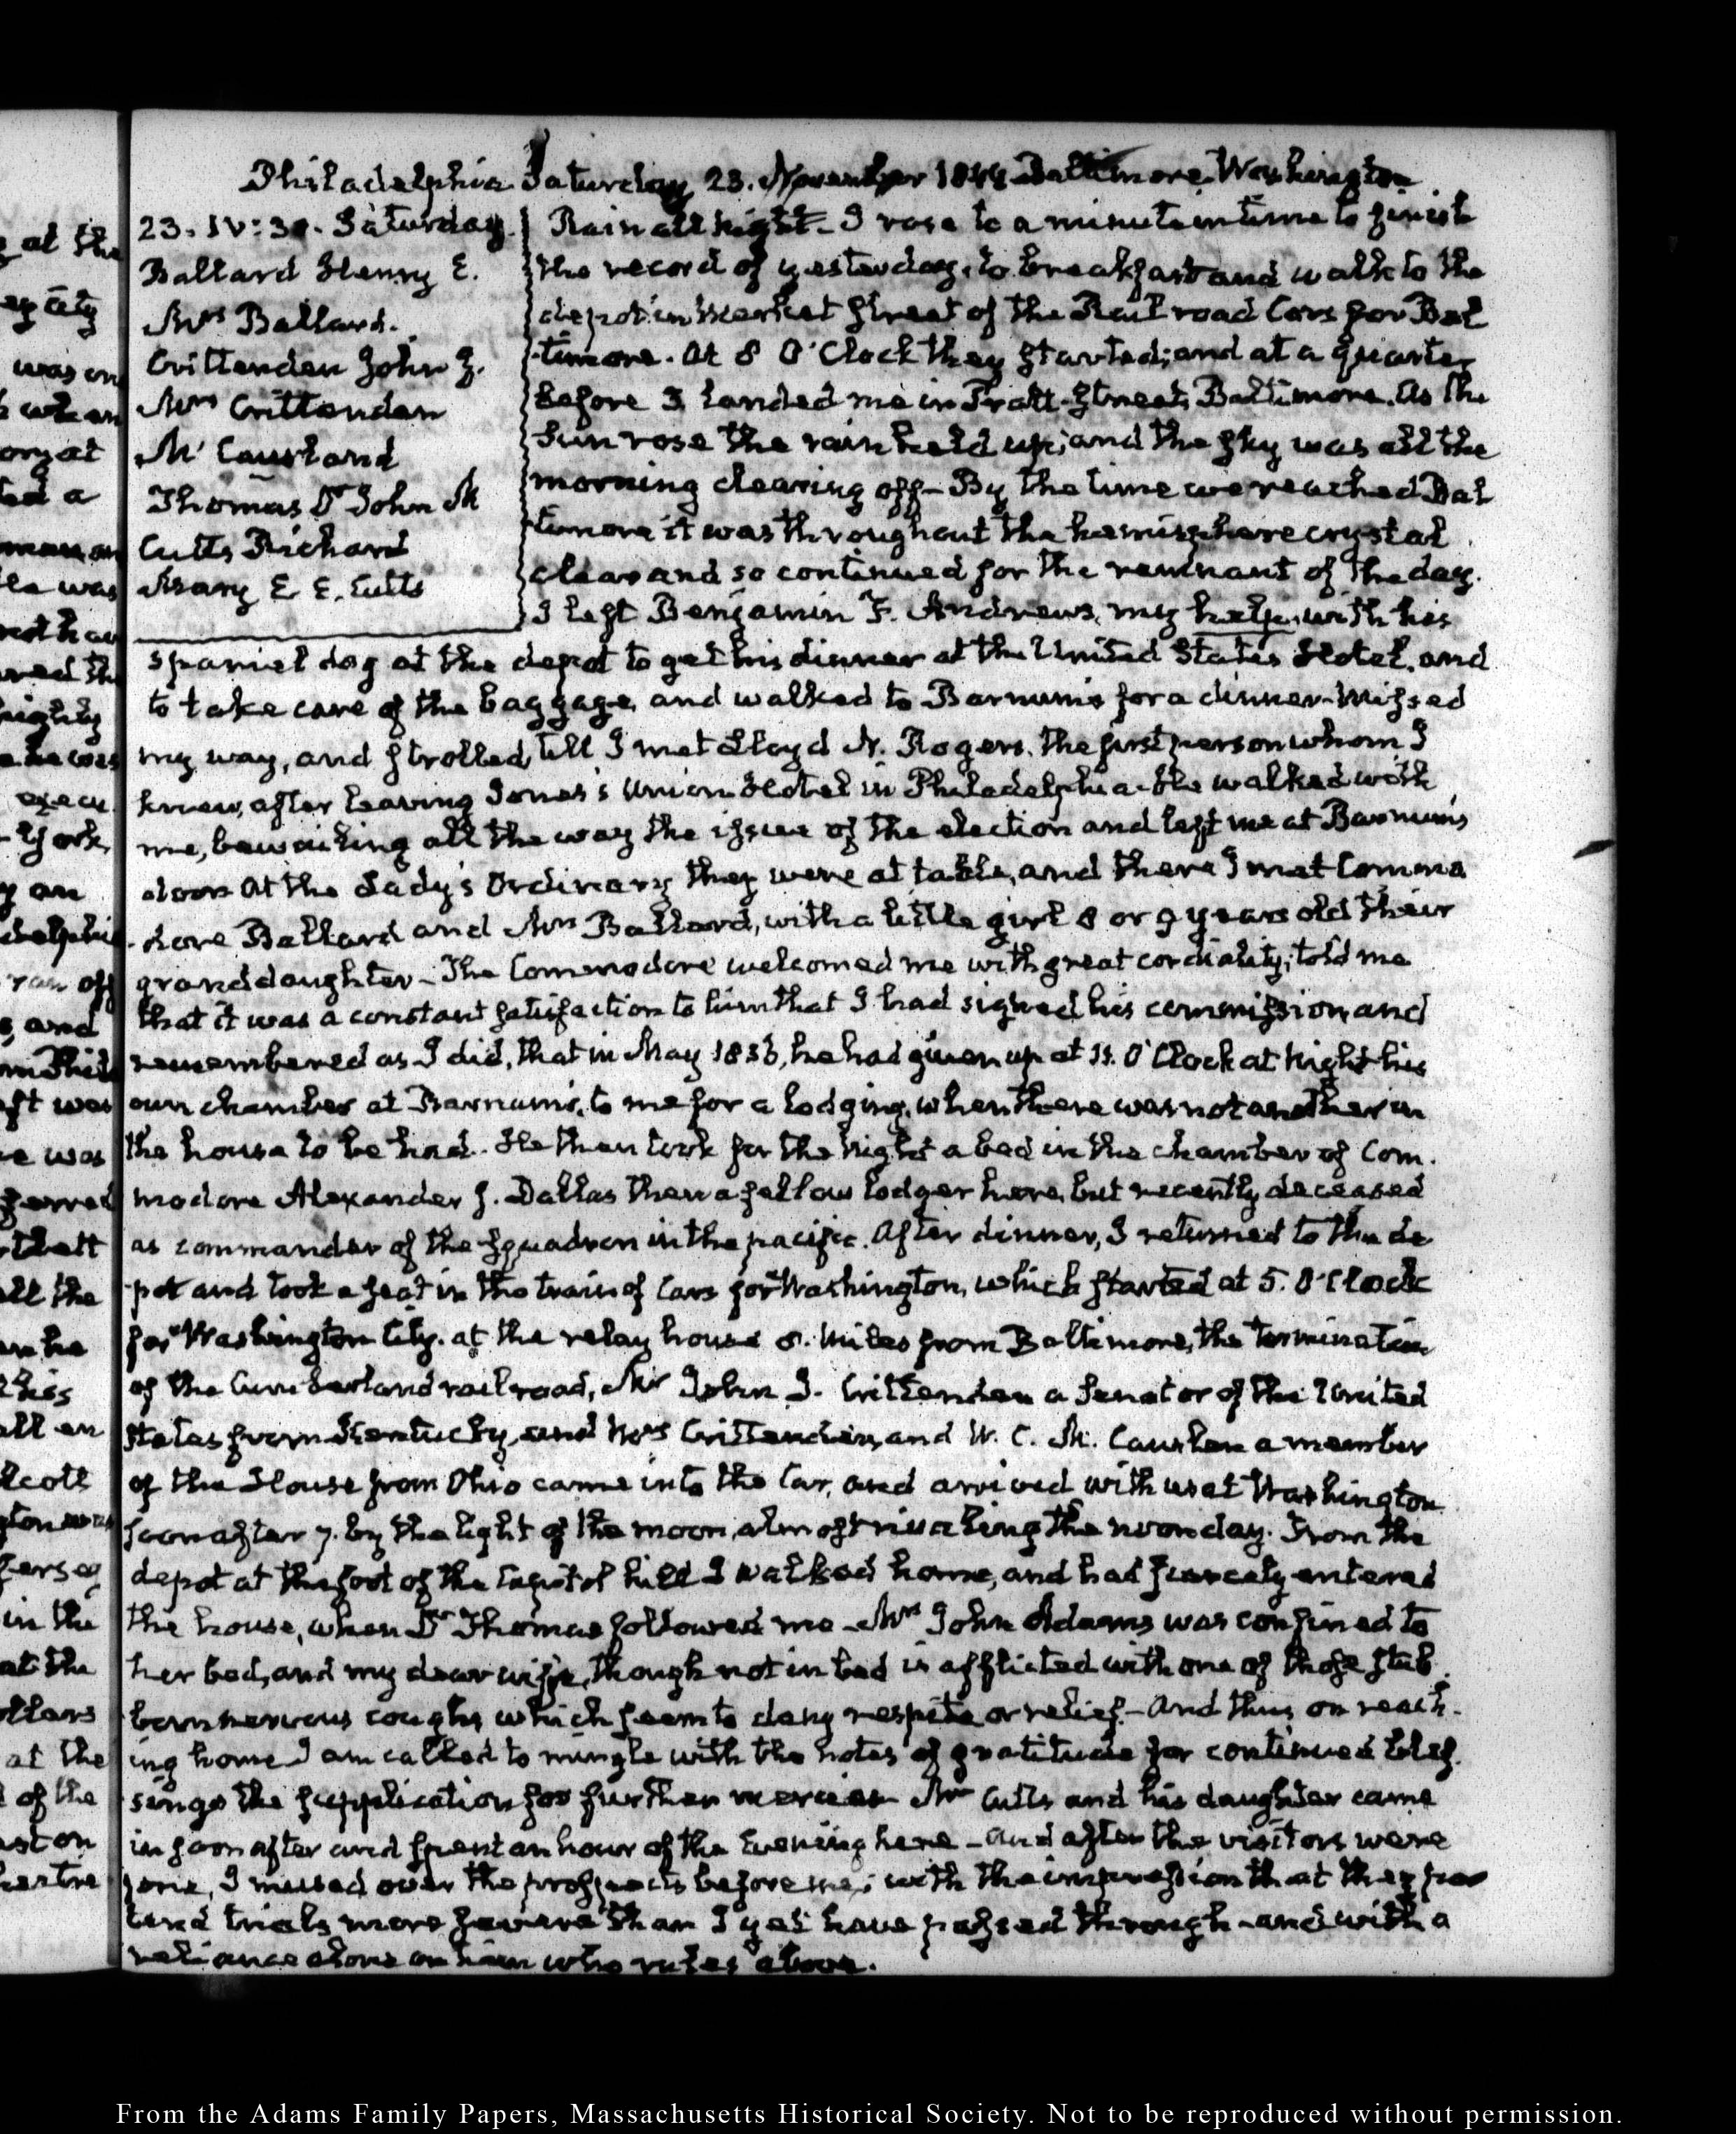 Philadelphia Saturday 23. November 1844 Baltimore Washington.
23. IV:30. Saturday.
Ballard Henry E.
Mrs Ballard.
Crittenden John J.
Mrs Crittenden
McCausland
Thomas Dr John M
Cutts Richard
Mary E. E. Cutts
Rain all night— I rose to a minute in time to finish
the record of yesterday, to breakfast and walk to the
depot in Market Street of the Rail road Cars for Bal
timore. At 8 O'Clock they started; and at a quarter
before 3 landed me in Pratt-Street, Baltimore. As the
Sun rose the rain held up; and the sky was all the
morning clearing off— By the time we reached Bal
timore it was throughout the hemisphere crystal
clear and so continued for the remnant of the day.
I left Benjamin F. Andrews, my help, with his
spaniel dog at the depot to get his dinner at the United States Hotel, and
to take care of the baggage, and walked to Barnum's for a dinner— Missed
my way, and strolled, till I met Lloyd N. Rogers, the first person whom I
knew, after leaving Jones's Union Hotel in Philadelphia— He walked with
me, bewailing all the way the issue of the election and left me at Barnum's
door. At the Lady's Ordinary they were at table, and there I met Commo
dore Ballard and Mrs Ballard, with a little girl 8 or 9 years old their
granddaughter— The Commodore welcomed me with great cordiality; told me
that it was a constant satisfaction to him that I had signed his commission, and
remembered as I did, that in May 1836, he had given up at 11. O'Clock at Night his
own chamber at Barnum's, to me for a lodging, when there was not another in
the house to be had. He then took for the night a bed in the chamber of Com.
modore Alexander J. Dallas then a fellow lodger here, but recently deceased
as commander of the squadron in the pacific. After dinner, I returned to the de
pot and took a seat in the train of Cars for Washington, which started at 5. O'Clock
for Washington City. at the relay house 8. miles from Baltimore, the termination
of the Cumberland railroad, Mr John J. Crittenden a Senator of the United
States from Kentucky, and Mrs Crittenden, and W. C. M. Causlen a member
of the House from Ohio came into the Car, and arrived with us at Washington
soon after 7. by the light of the moon, almost rivalling the noon day. From the
depot at the foot of the Capitol hill I walked home, and had scarcely entered
the house, when Dr Thomas followed me— Mrs John Adams was confined to
her bed, and my dear wife, though not in bed is afflicted with one of those stub
born nervous coughs which seem to deny respite or relief— And thus on reach-
ing home I am called to mingle with the notes of gratitude for continued bles
sings the supplication for further mercies— Mr Cutts and his daughter came
in soon after and spent an hour of the Evening here— And after the visitors were
gone, I mused over the prospects before me; with the impression that they por
tend trials more severe than I yet have passed through—and with a
reliance alone on him who rules above.
From the Adams Family Papers, Massachusetts Historical Society. Not to be reproduced without permission.